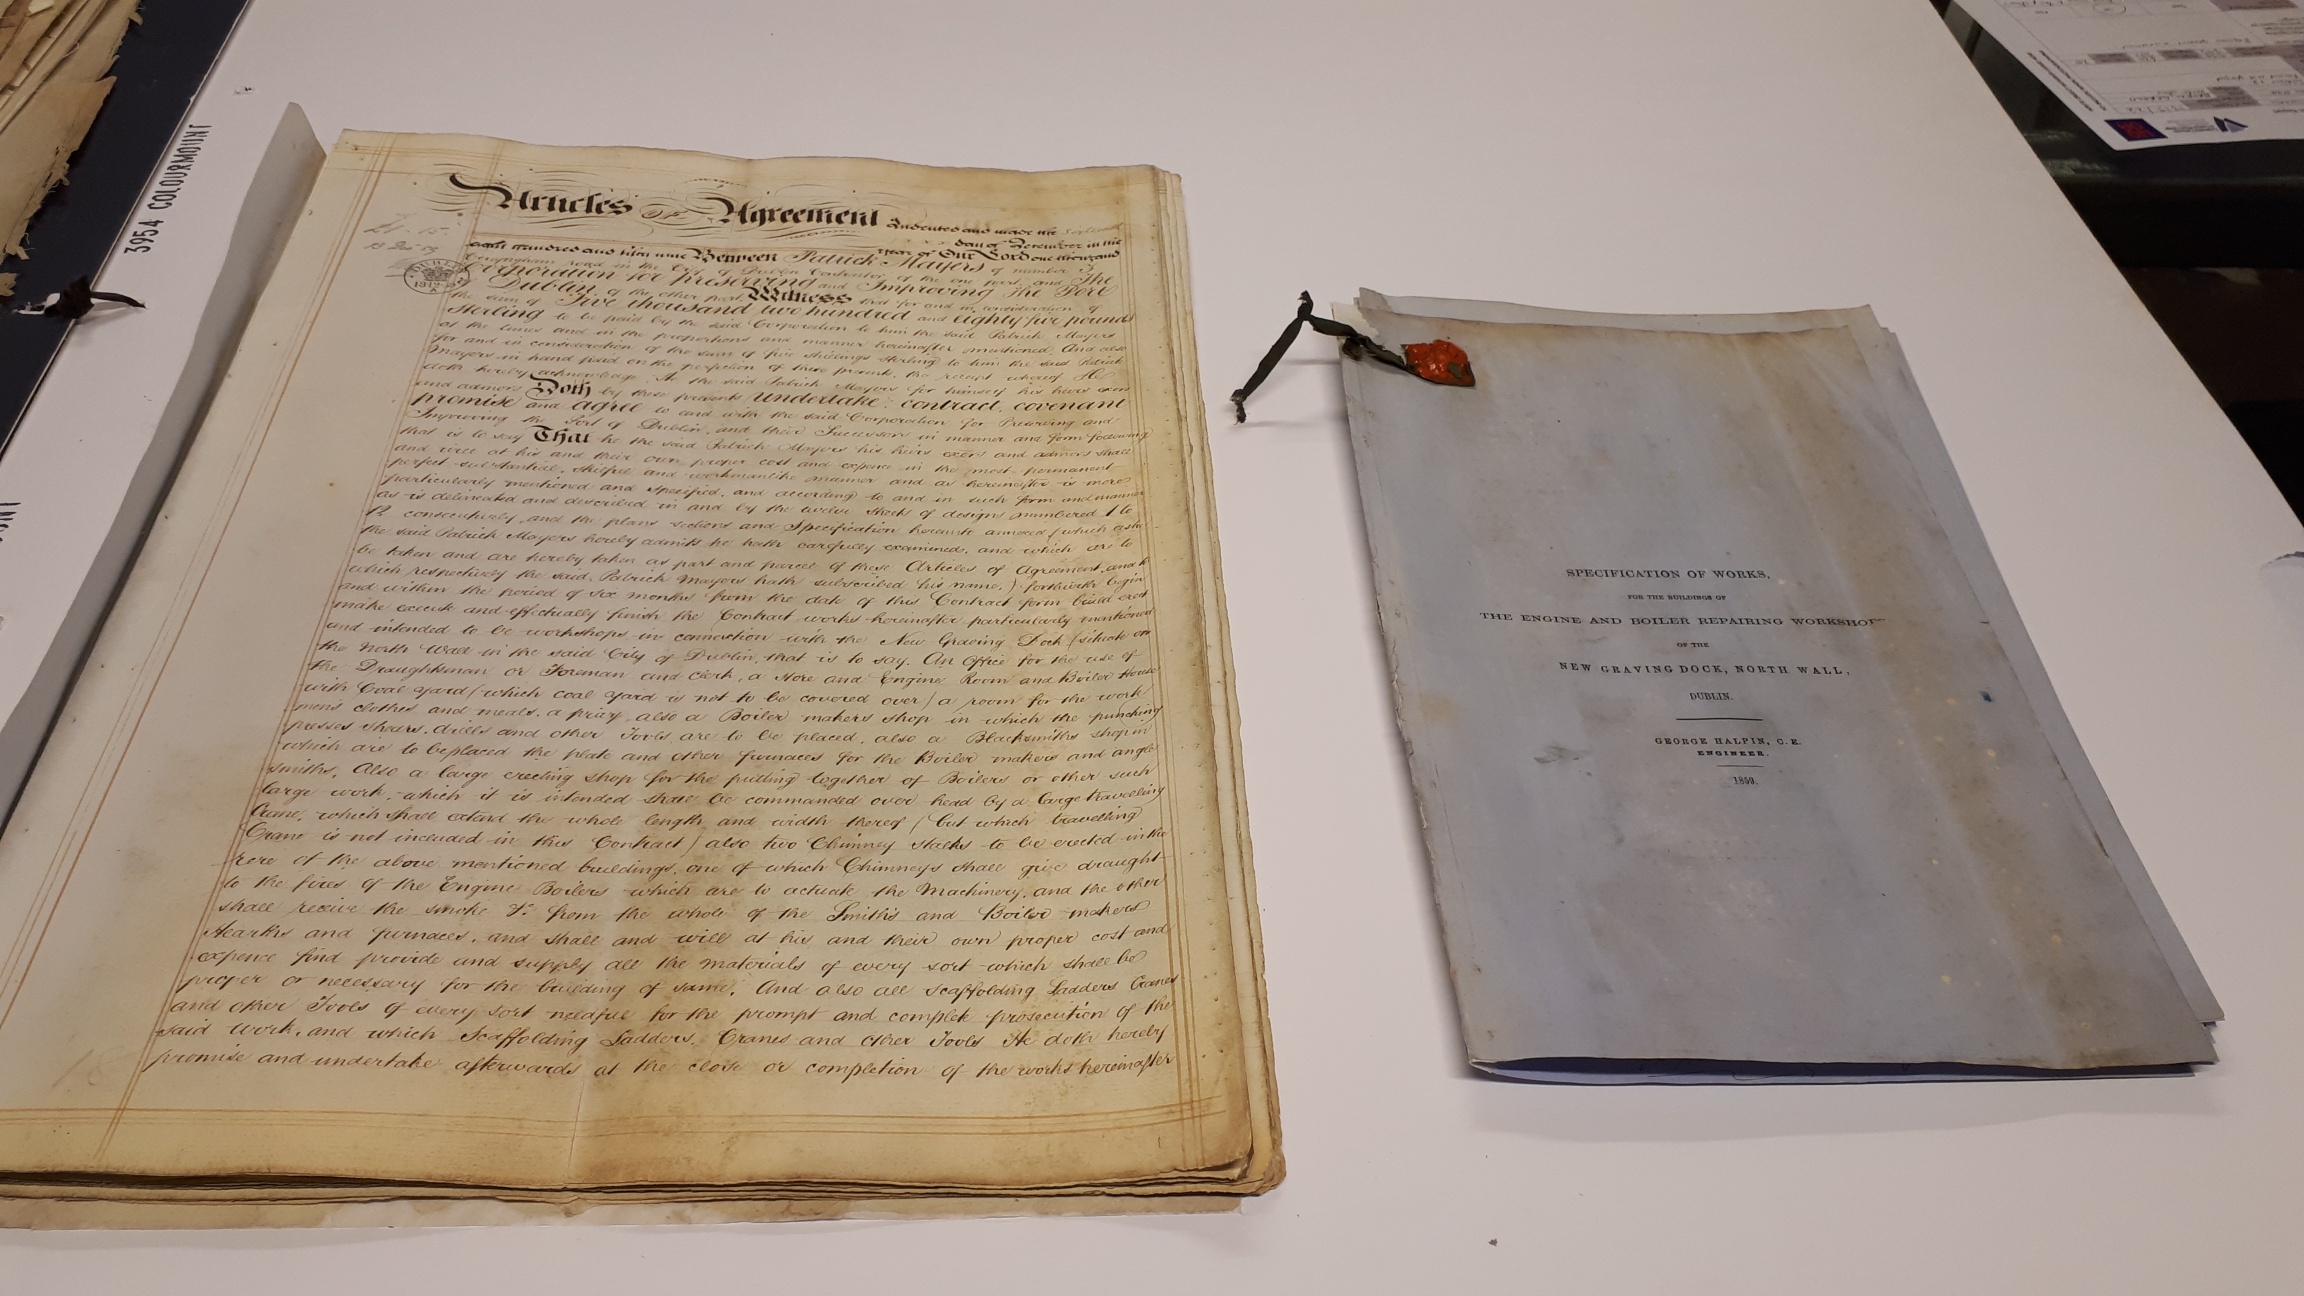 3954 COLOURMOUNT
Articles OF Agreement Indented and made the
day of December in the
year of Our Lord one thousand
eight hundred and fifty nine Between Patrick Mayers of number 3
road in the City of Dublin Contractor of the one part and The
Corporation for Preserving and Improving the Port
of Dublin of the other part Witness that for and in consideration of
the sum of Five thousand two hundred and eighty five pounds
Sterling to be paid by the said Corporation to him the said Patrick Mayers
at the times and in the proportions and manner hereinafter mentioned And also
for and in consideration of the sum of five shillings sterling to him the said Patrick
Mayers in hand paid on the perfection of these presents, the receipt whereof He
doth hereby acknowledge, He the said Patrick Mayers for himself his heirs exors
and admors Doth by these presents undertake, contract, covenant
promise and agree to and with the said Corporation for Preserving and
Improving the Port of Dublin, and their Successors in manner and form following
that is to say That he the said Patrick Mayers his heirs exors and admors shall
and will at his and their own proper cost and expence in the most permanent
perfect substantial, skilful and workmanlike manner and as hereinafter is more
particularly mentioned and specified, and according to and in such form and manner
as is delineated and described in and by the twelve sheets of designs numbered 1 to
12 consecutively, and the plans sections and Specification hereunto annexed (which
the said Patrick Mayers hereby admits he hath carefully examined, and which are to
be taken and are hereby taken as part and parcel of these Articles of Agreement, and to
which respectively the said Patrick Mayers hath subscribed his name,) forthwith begin
and within the period of six months from the date of this Contract form build erect
make execute and effectually finish the Contract works hereinafter particularly mentioned
and intended to be workshops in connection with the New Graving Dock (situate on
the North Wall in the said City of Dublin, that is to say, An Office for the use of
the Draughtsman or Foreman and clerk, a store and Engine Room and Boiler House
with Coal yard (which coal yard is not to be covered over) a room for the work
mens clothes and meals, a privy, also a Boiler makers shop in which the punching
presses shears, drills and other Tools are to be placed, also a Blacksmiths shop in
which are to be placed the plate and other furnaces for the Boiler makers and angle
smiths, Also a large erecting shop for the putting together of Boilers or other such
large work, which it is intended shall be commanded over head by a large travelling
Crane, which shall extend the whole length and width thereof (but which travelling
Crane is not included in this Contract) also two Chimney stalks to be erected in the
rere of the above mentioned buildings, one of which Chimneys shall give draught
to the fires of the Engine Boilers which are to actuate the Machinery, and the other
shall receive the smoke &c from the whole of the Smiths and Boiler makers
Hearths and furnaces, and shall and will at his and their own proper cost and
expence find provide and supply all the materials of every sort which shall be
proper or necessary for the building of same, And also all scaffolding Ladders Cranes
and other Tools of every sort needful for the prompt and complete prosecution of the
said work, and which Scaffolding Ladders, Cranes and other Tools He doth hereby
promise and undertake afterwards at the close or completion of the works hereinafter
1
DUBLIN
SPECIFICATION OF WORKS,
FOR THE BUILDINGS OF
THE ENGINE AND BOILER REPAIRING WORKSHOPS
OF THE
NEW GRAVING DOCK, NORTH WALL,
DUBLIN.
GEORGE HALPIN, C.E.
ENGINEER.
1859.